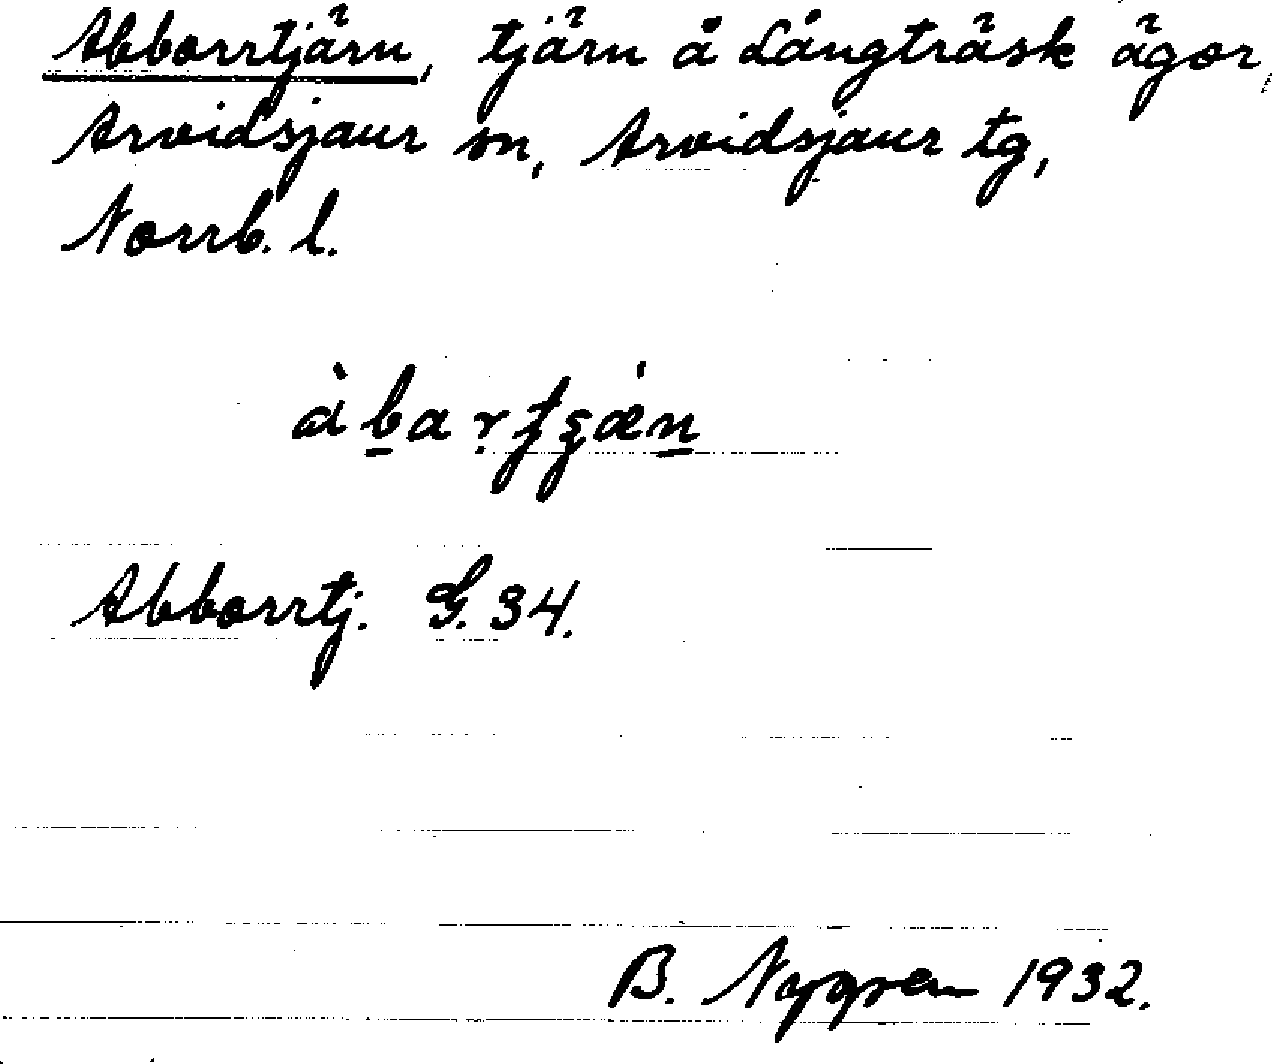 Abborrtjärn, tjärn å Långträsk ägor,
Arvidsjaur sn, Arvidsjaur tg,
Norrb. l.
Abborrtj. G. 34.
B. Nygren 1932.